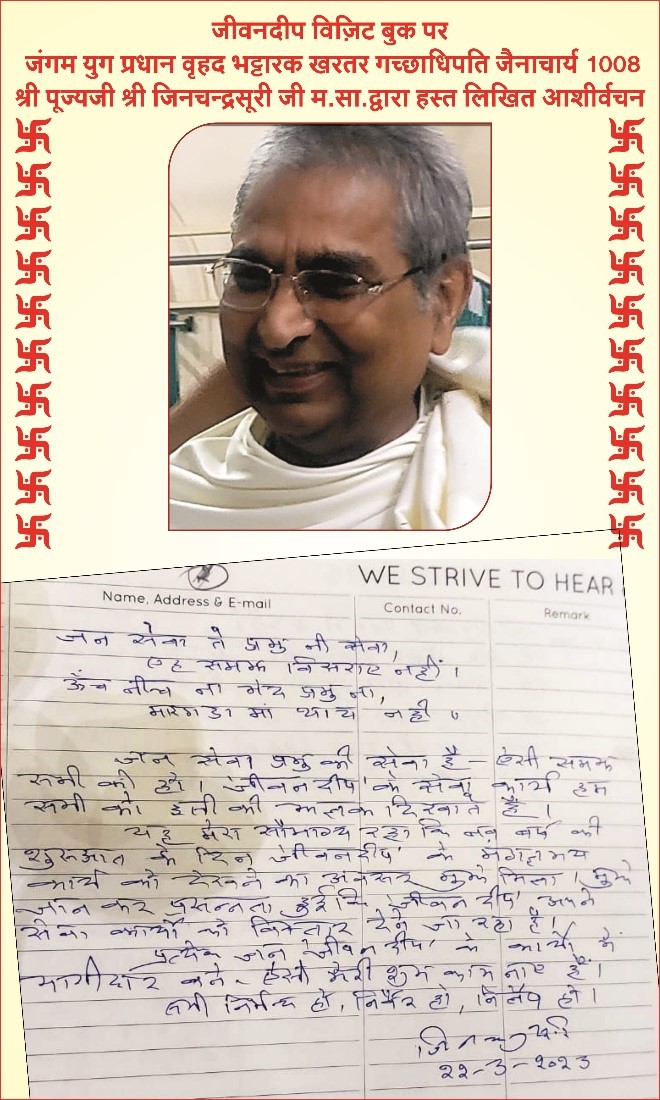 जीवनदीप विज़िट बुक पर
जंगम युग प्रधान वृहद भट्टारक खरतर गच्छाधिपति जैनाचार्य 1008
श्री पूज्यजी श्री जिनचन्द्रसूरी जी म.सा.द्वारा हस्त लिखित आशीर्वचन
WE STRIVE TO HEAR
Name, Address & E-mail
Contact No.
Remark
जन सेवा ते प्रभु नी सेवा,
एह समझ विसराए नहीं ।
ऊँच नीच ना भेद प्रभु ना,
मारगडा मां थाय नही ।
जन सेवा प्रभु की सेवा है – ऐसी समझ
सभी की हो । 'जीवनदीप' के सेवा कार्य हम
सभी को इसी की झलक दिखाते हैं ।
यह मेरा सौभाग्य रहा कि नव वर्ष की
शुरुआत के दिन 'जीवनदीप' के मंगलमय
कार्य को देखने का अवसर मुझे मिला । मुझे
जान कर प्रसन्नता हुई कि 'जीवनदीप' अपने
सेवा कार्यों को विस्तार देने जा रहा है ।
प्रत्येक जन 'जीवनदीप' के कार्यों में
भागीदार बने - ऐसी मेरी शुभ कामनाएं हैं ।
सभी हो, निर्वैर हो, निर्लेप हो ।
२२-३-२०२३